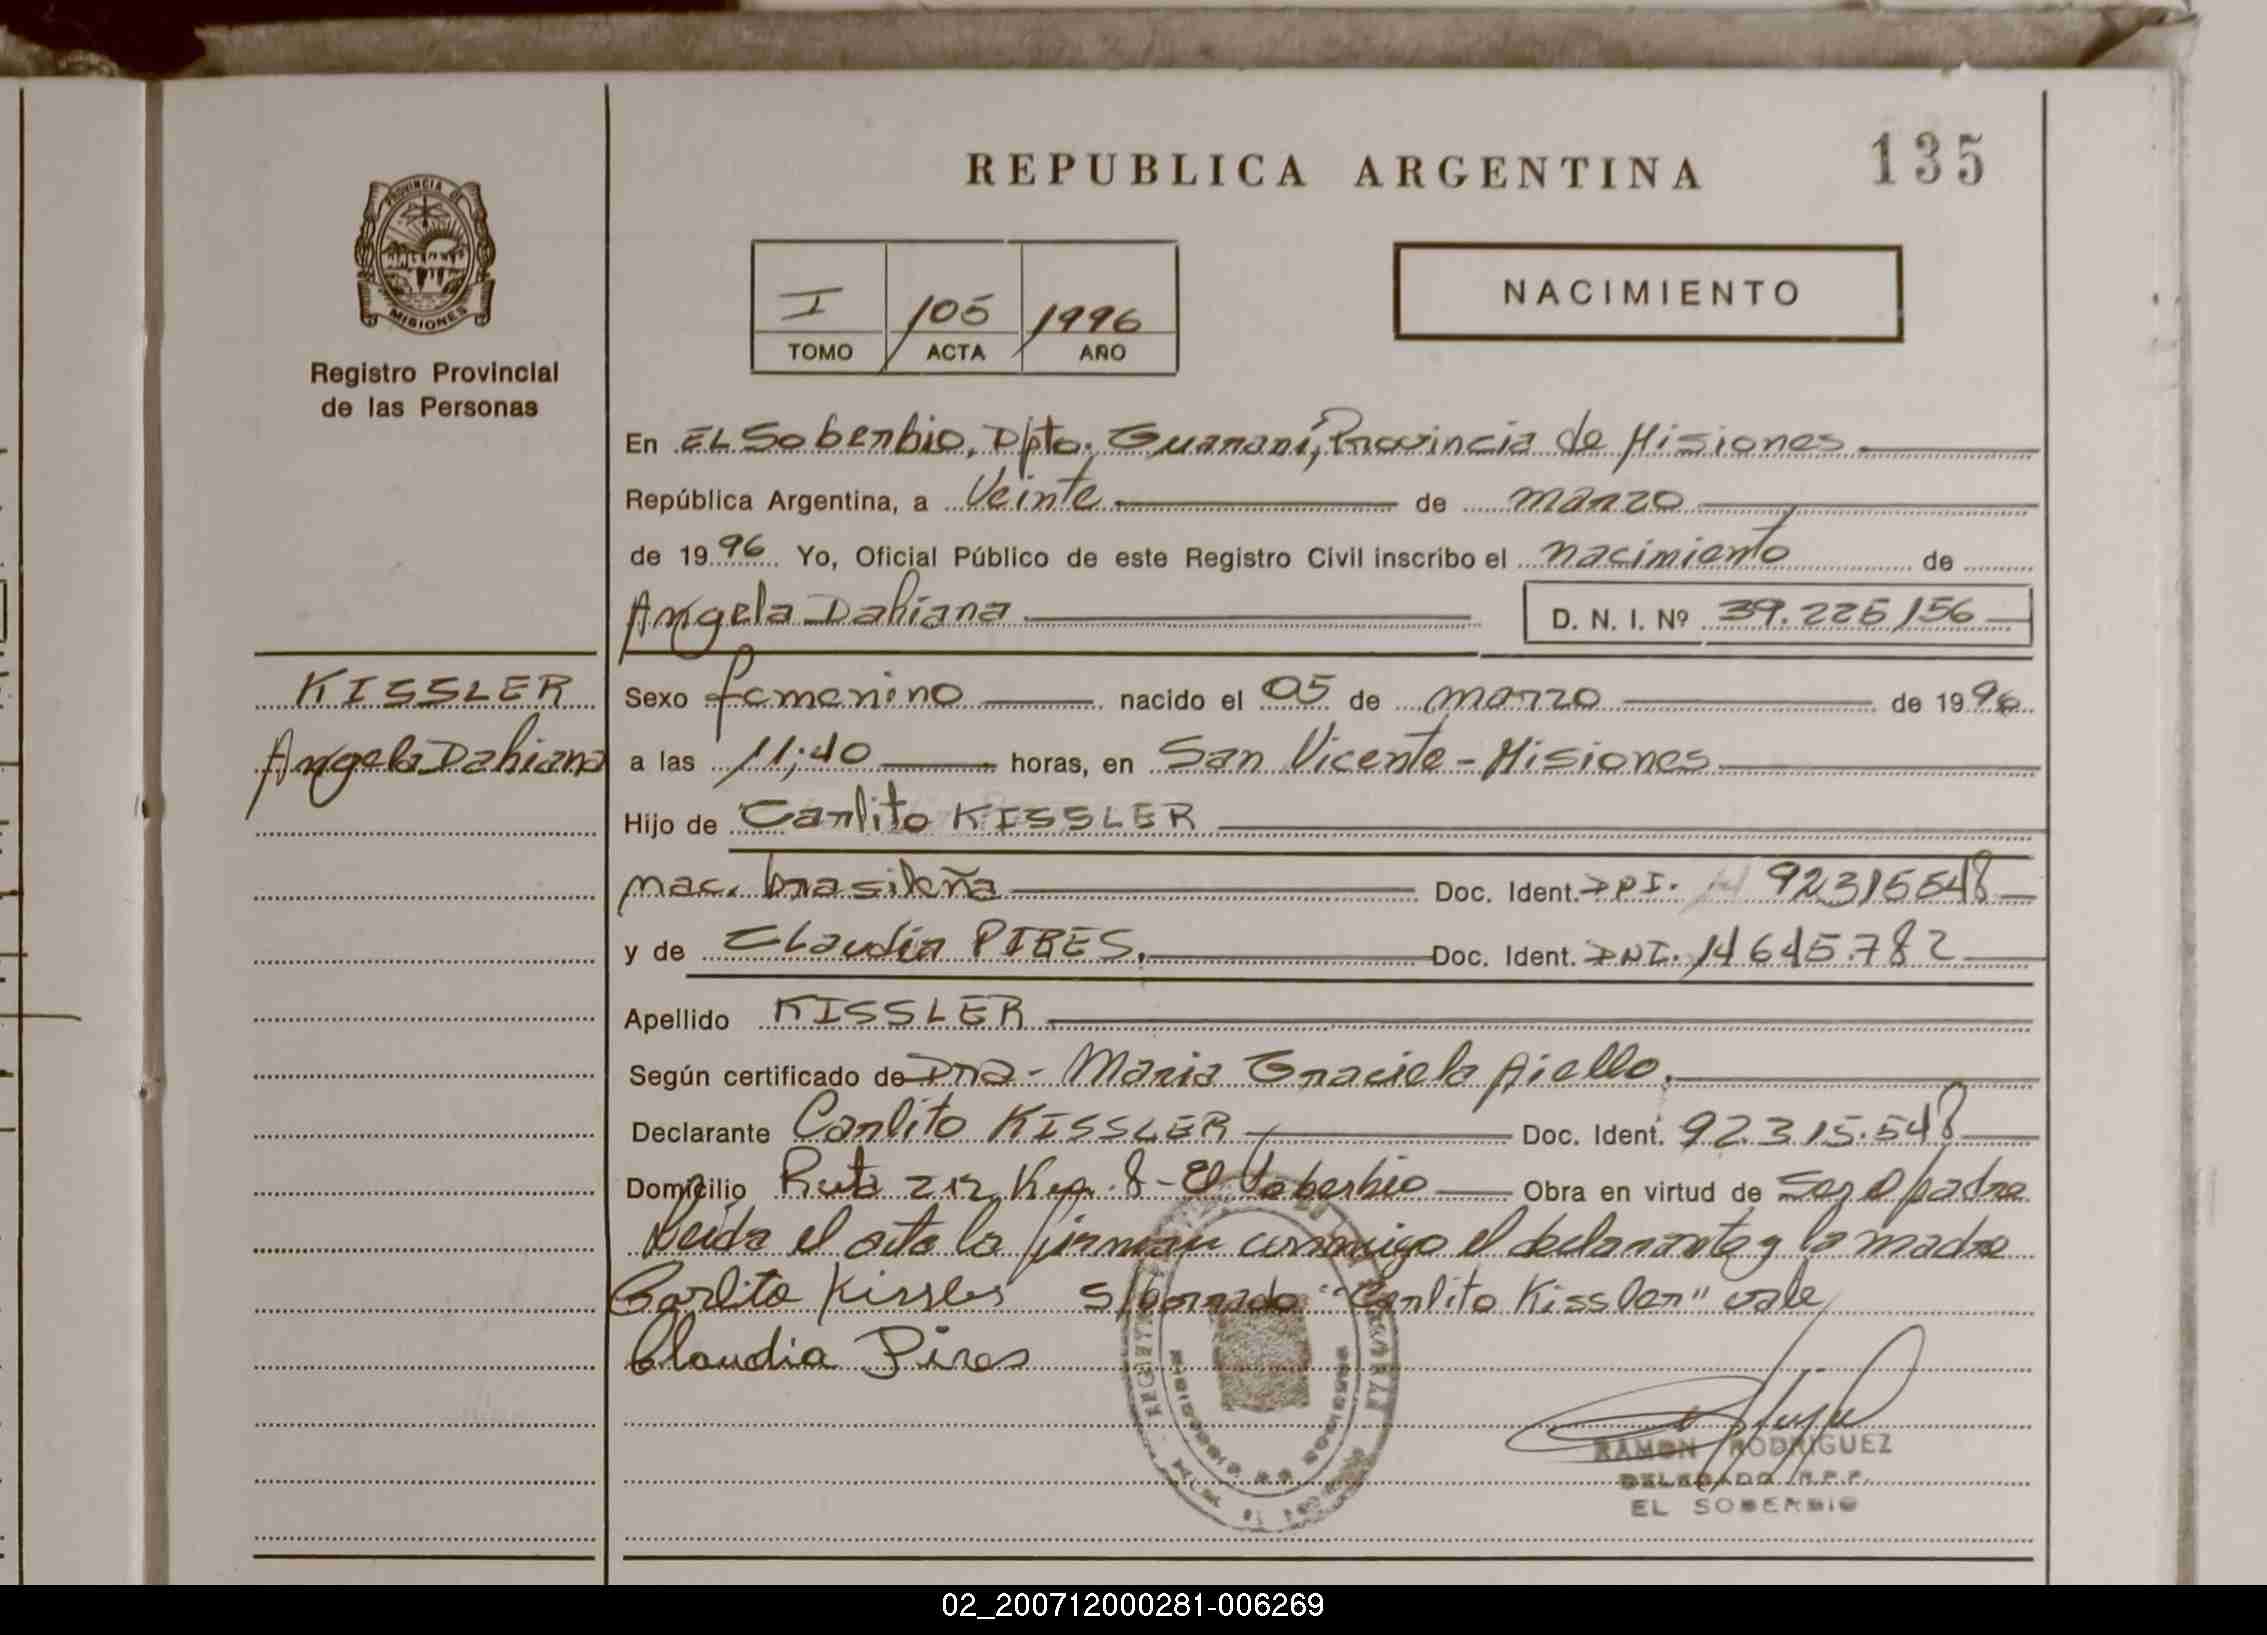 REPUBLICA ARGENTINA
135
PROVINCIA DE
MISIONES
Registro Provincial
de las Personas
I 105 1996
TOMO ACTA AÑO
NACIMIENTO
En El Soberbio, Dpto. Guarani, Provincia de Misiones
República Argentina, a Veinte de marzo
de 1996 Yo, Oficial Público de este Registro Civil inscribo el nacimiento de
Angela Dahiana D. N. I. Nº 39.225,156
KISSLER
Angela Dahiana
Sexo femenino nacido el 05 de marzo de 1996
a las 11;40 horas, en San Vicente - Misiones
Hijo de Carlito KISSLER
nac. brasileña Doc. Ident. DNI. 92315548
y de Claudia PIRES. Doc. Ident. DNI. 14645.782
Apellido KISSLER
Según certificado de Dra - Maria Graciela Aiello.
Declarante Carlito KISSLER Doc. Ident. 92.315.548
Domicilio Ruta 212 Km. 8 - El Soberbio Obra en virtud de Ser el padre
Leida el acta la firman conmigo el declarante y la madre
Carlito Kissler S/borrado "Carlito Kissler" vale
Claudia Pires
RAMON RODRIGUEZ
DELEGADO R.P.P.
EL SOBERBIO
02_200712000281-006269